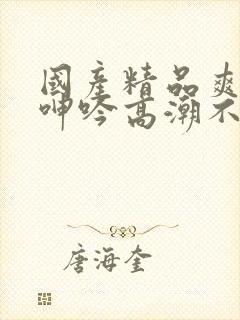 國產精品爽
呻吟高潮不
唐海奎